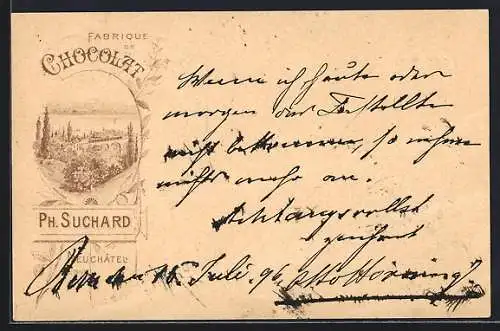 FABRIQUE
DE
CHOCOLAT
PH. SUCHARD
NEUCHÂTEL
Wenn ich heute oder
morgen das Bestellte
nicht bekomme, so nehme
nichts mehr an.
Achtungsvollst
zeichnet
15. Juli. 96.